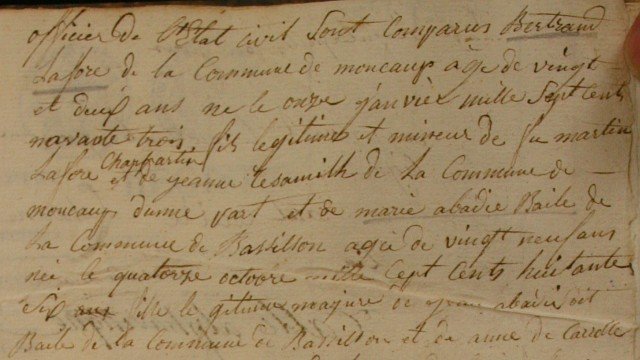 officier de l'Etat civil Sont Comparus Bertrand
Lafore de la Commune de moncaup agé de vingt
et deux ans né le onze janvier mille Sept Cents
navante trois fils legitime et mineur de fu martin
Lafore Charpantier et de jeanne de la Commune de
moncaup dunne part et de marie abadie Baile de
La Commune de Bassillon agée de vingt neuf ans
née le quatorze octovre mille Sept Cents huitante
Six fille le gitime majure de abadie dit
Baile de la Commune de Bassillon et de anne de Carrelle